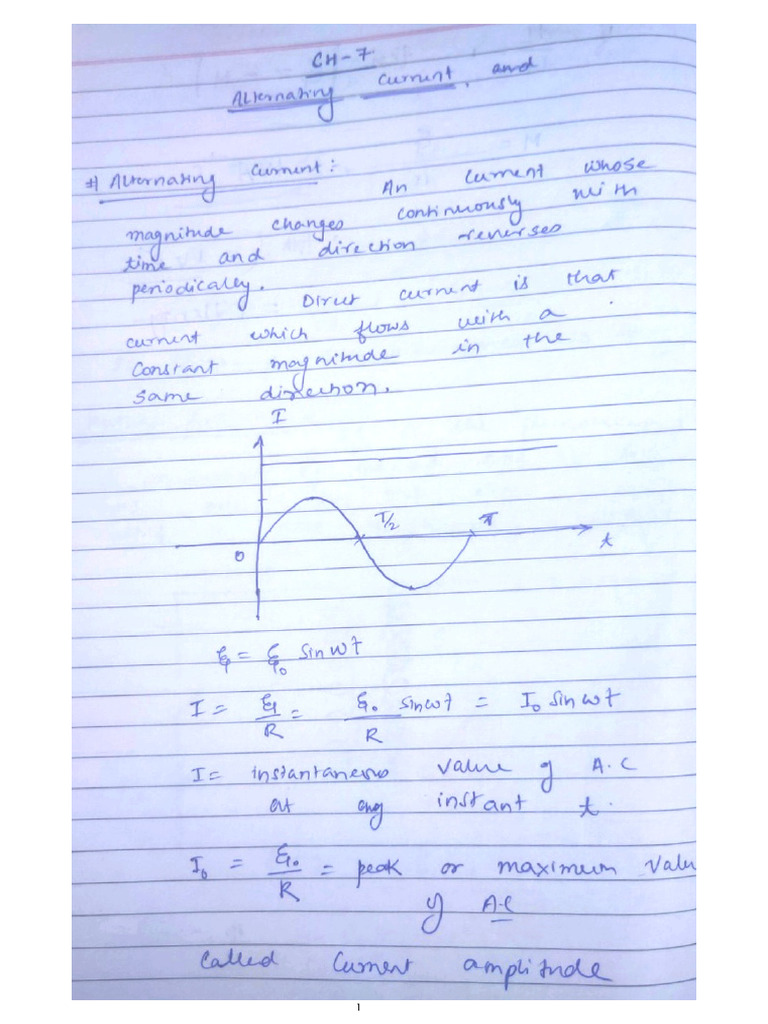 CH-7
Alternating Current, and
# Alternating Current:-
An current whose
magnitude changes continuously with
time and direction reverses
periodically.
Direct current is that
current which flows with a
constant magnitude in the
same direction.
I
T/2
0
t
ξ = ξ₀ sinωt
I = ξ/R = ξ₀/R sinωt = I₀ sinωt
I = instantaneous value of A.C
at any instant t.
I₀ = ξ₀/R = peak or maximum valu
of A.C
Called Current amplitude
1